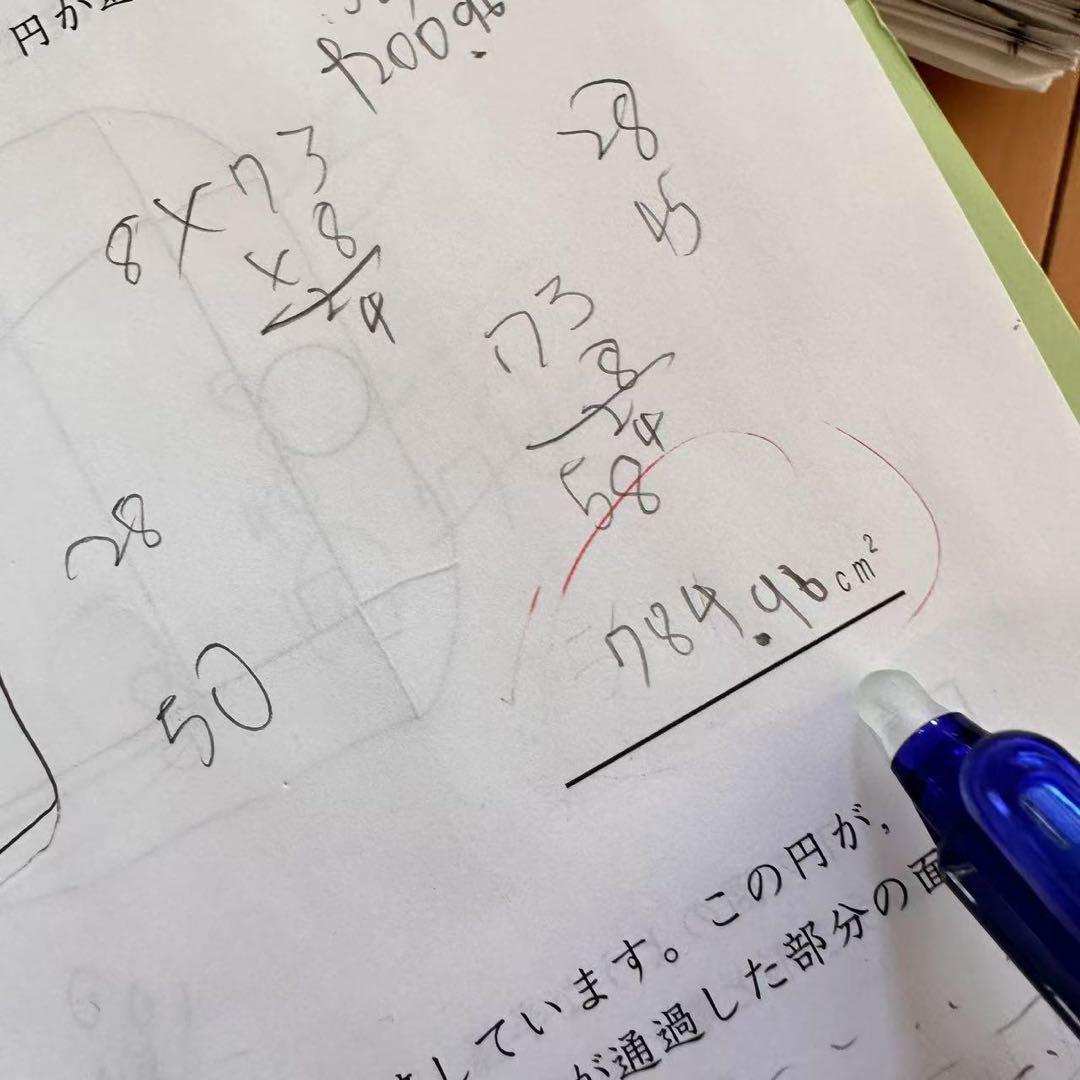 円が
200.96
28
45
8×73
×8
24
73
8
24
58
28
50
784.96cm²
しています。この円が,
が通過した部分の面